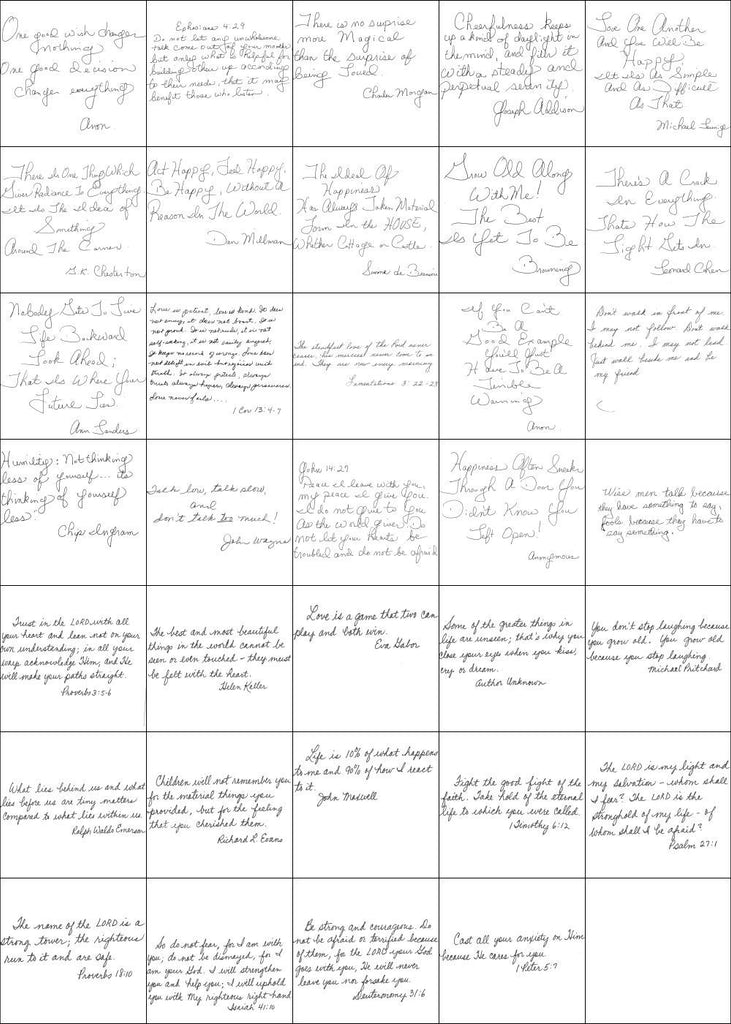 One good wish changes
nothing
One good decision
changes everything
Anon.
Ephesians 4:29
Do not let any unwholesome
talk come out of your mouths
but only what is helpful for
building others up according
to their needs, that it may
benefit those who listen.
There is no suprise
more Magical
than the surprise of
being loved
Charles Morgan
Cheerfulness keeps
up a kind of daylight in
the mind, and fills it
with a steady and
perpetual serenity.
Joseph Addison
Love One Another
And You Will Be
Happy.
It Is As Simple
And As Difficult
As That
Michael Leunig
There Is One Thing Which
Gives Radiance To Everything
It Is The Idea of
Something
Around The Corner.
G.K. Chesterton
Act Happy, Feel Happy,
Be Happy, Without A
Reason In The World.
Dan Millman
The Ideal Of
Happiness
Has Always Taken Material
Form In the HOUSE,
Whether Cottage or Castle.
Simone de Beauvoir
Grow Old Along
With Me!
The Best
Is Yet To Be
Browning
There's A Crack
In Everything.
Thats How The
Light Gets In
Leonard Cohen
Nobody Gets To Live
Life Backward
Look Ahead;
That Is Where Your
Future Lies
Ann Landers
Love is patient, love is kind. It does
not envy, it does not boast, it is
not proud. It is not rude, it is not
self-seeking, it is not easily angered,
it keeps no record of wrongs. Love does
not delight in evil but rejoices with
truth. It always protects, always
trusts always hopes, always perseveres.
Love never fails....
1 Cor 13:4-7
The steadfast love of the Lord never
ceases, his mercies never come to an
end. They are new every morning
Lamentations 3:22-23
If You Can't
Be A
Good Example
You'll Just
Have To Be A
Terrible
Warning
Anon.
Don't walk in front of me
I may not follow Dont walk
behind me, I may not lead
Just walk beside me and be
my friend
Humility: Not thinking
less of yourself... its
thinking of yourself
less.
Chip Ingram
Talk low, talk slow,
and
don't talk too much!
John Wayne
John 14:27
Peace I leave with you,
my peace I give you
I do not give to you
As the world gives. Do
not let your hearts be
troubled and do not be afraid
Happiness Often Sneaks
Through A Door You
Didn't Know You
Left Open!
Anonymous
Wise men talk because
they have something to say,
fools because they have to
say something.
Trust in the LORD with all
your heart and lean not on your
own understanding; in all your
ways acknowledge Him, and He
will make your paths straight.
Proverbs 3:5-6
The best and most beautiful
things in the world cannot be
seen or even touched - they must
be felt with the heart.
Helen Keller
Love is a game that two can
play and both win.
Eva Gabor
Some of the greatest things in
life are unseen; that's why you
close your eyes when you kiss,
cry or dream.
Author Unknown
You don't stop laughing because
you grow old. You grow old
because you stop laughing.
Michael Pritchard
What lies behind us and what
lies before us are tiny matters
compared to what lies within us.
Ralph Waldo Emerson
Children will not remember you
for the material things you
provided, but for the feeling
that you cherished them.
Richard L Evans
Life is 10% of what happens
to me and 90% of how I react
to it.
John Maxwell
Fight the good fight of the
faith. Take hold of the eternal
life to which you were called.
1 Timothy 6:12
The LORD is my light and
my salvation - whom shall
I fear? The LORD is the
stronghold of my life - of
whom shall I be afraid?
Psalm 27:1
The name of the LORD is a
strong tower; the righteous
run to it and are safe.
Proverbs 18:10
So do not fear, for I am with
you; do not be dismayed, for I
am your God. I will strengthen
you and help you; I will uphold
you with My righteous right hand
Isaiah 41:10
Be strong and courageous. Do
not be afraid or terrified because
of them, for the LORD your God
goes with you, He will never
leave you nor forsake you.
Deuteronomy 31:6
Cast all your anxiety on Him
because He cares for you
1 Peter 5:7